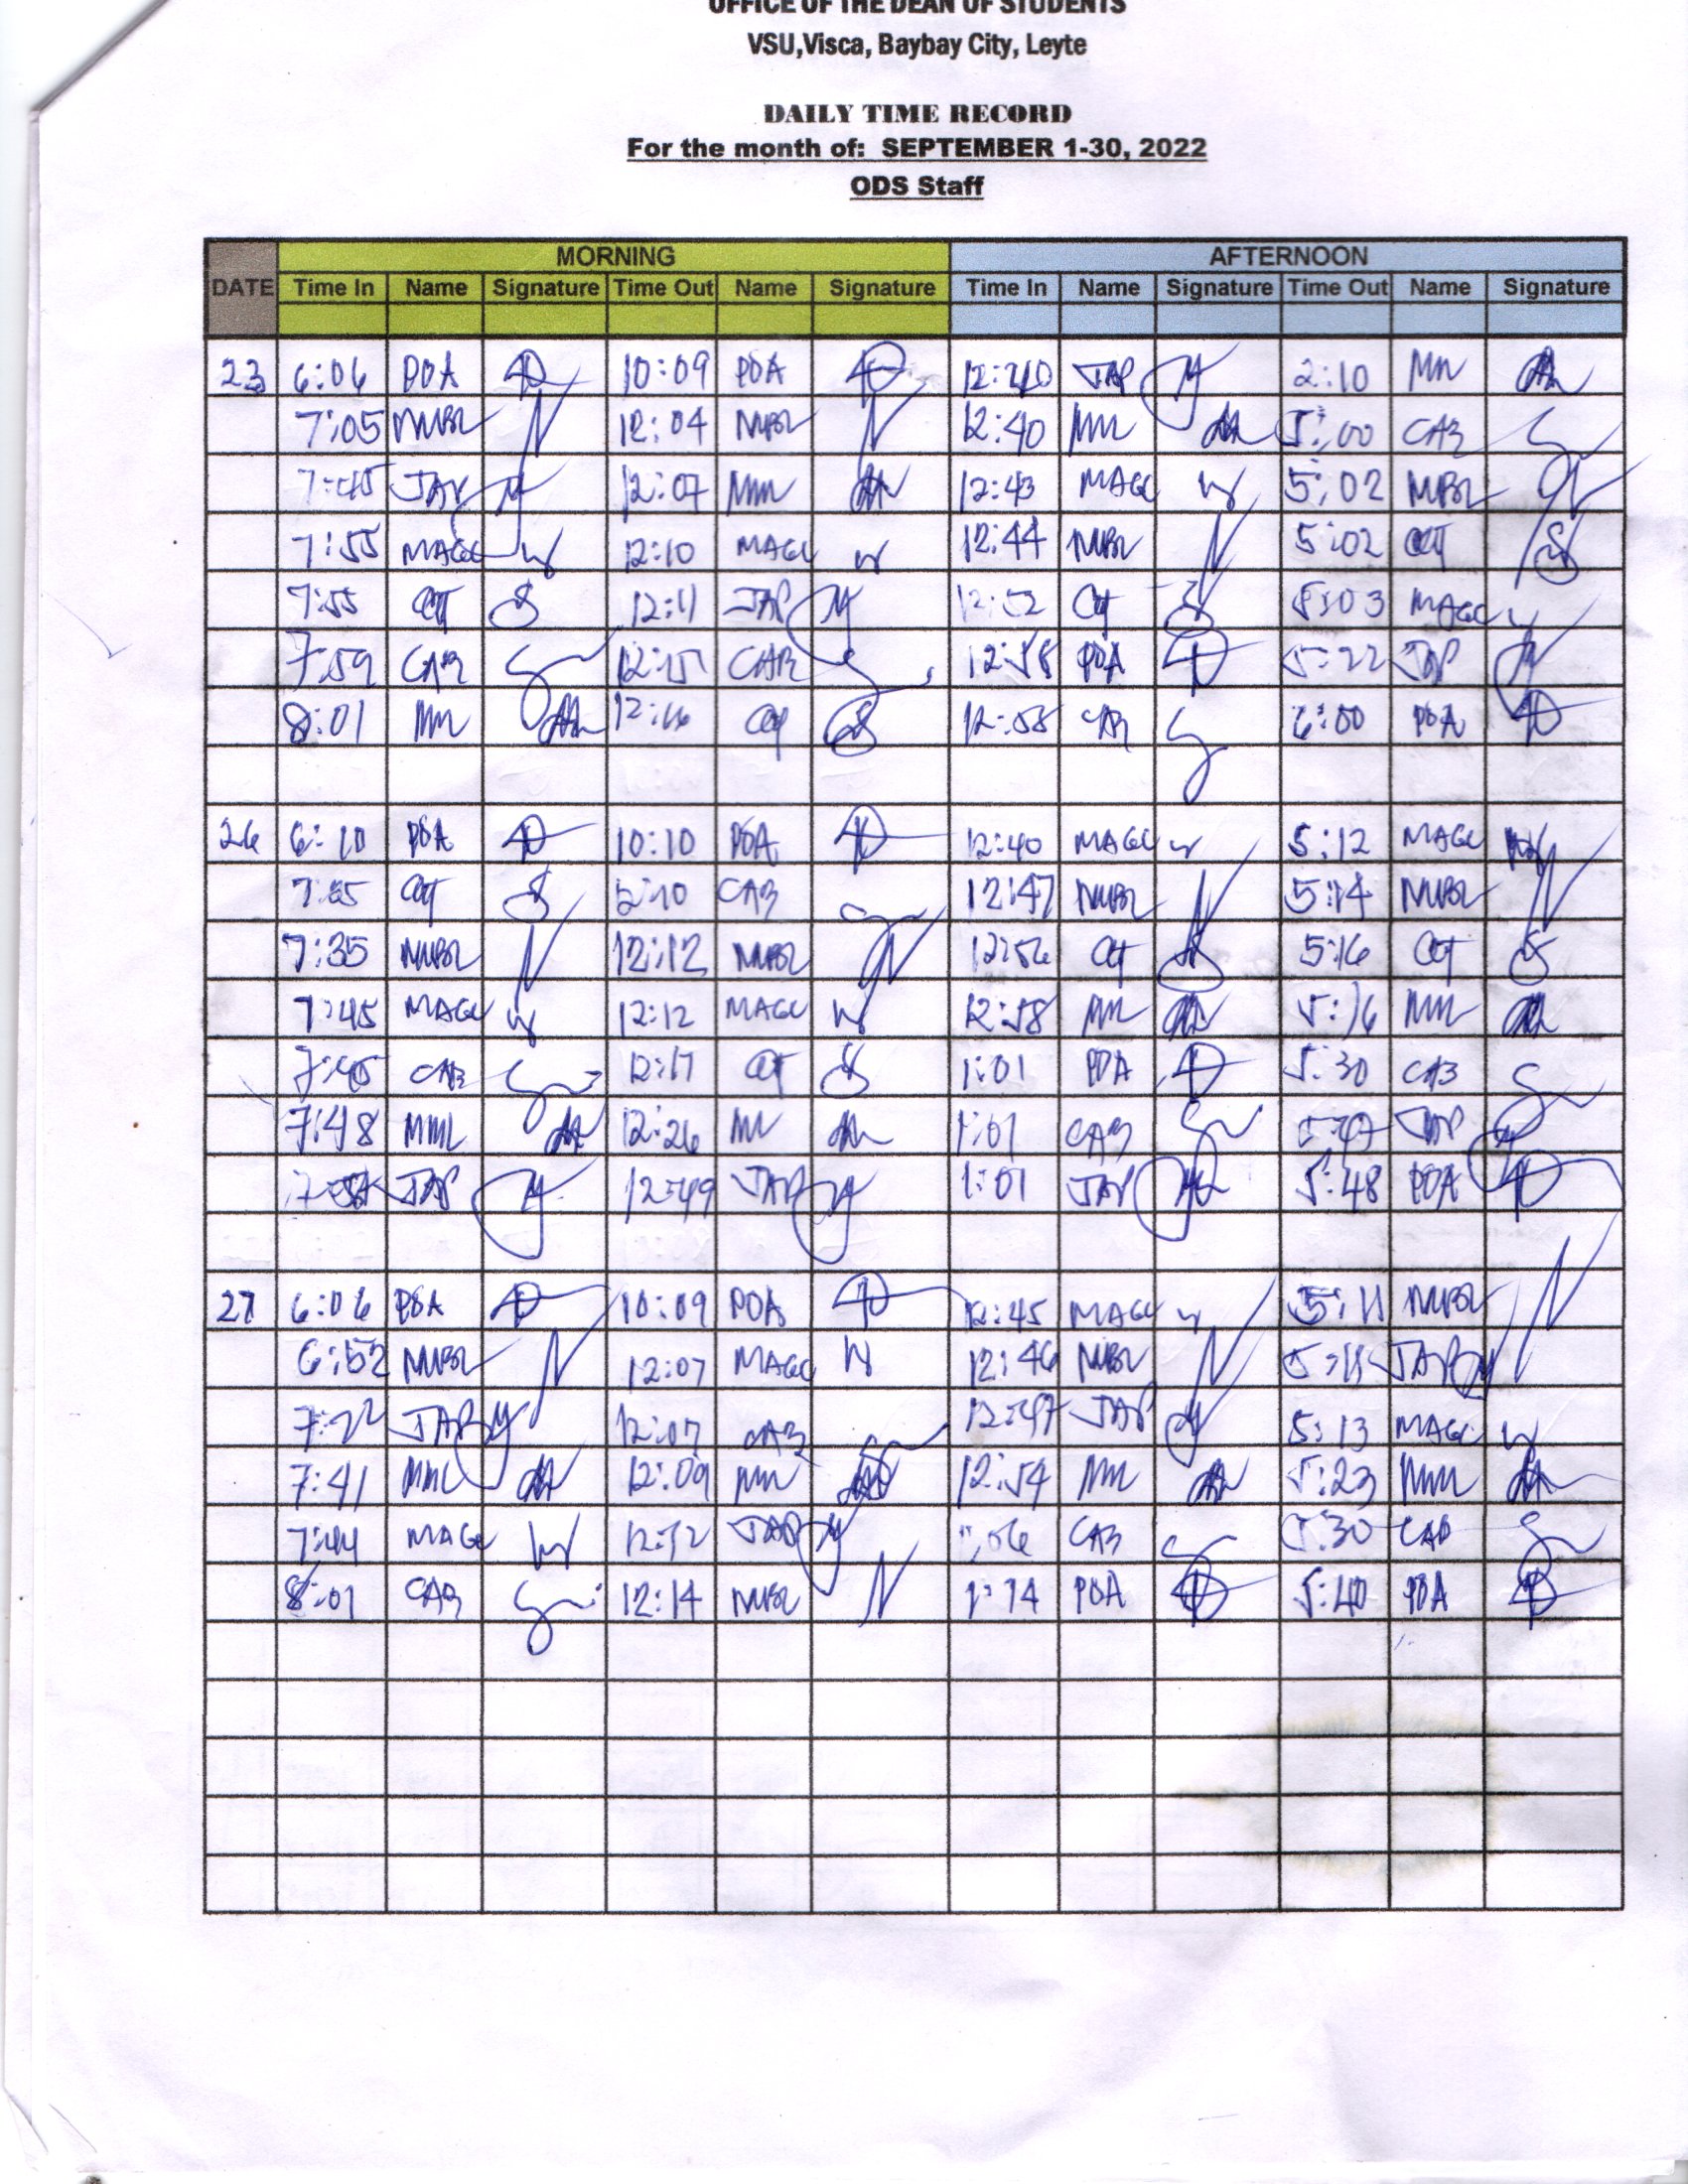 OFFICE OF THE DEAN OF STUDENTS
VSU,Visca, Baybay City, Leyte
DAILY TIME RECORD
For the month of: SEPTEMBER 1-30, 2022
ODS Staff
MORNING AFTERNOON
DATE Time In Name Signature Time Out Name Signature Time In Name Signature Time Out Name Signature
23 6:06 POA 10:09 POA 12:40 JAP 2:10 MM
7:05 NMBL 12:04 NMBL 12:40 MM 5:00 CAB
7:45 JAP 12:07 MM 12:43 MAGC 5:02 NMBL
7:55 MAGC 12:10 MAGC 12:44 NMBL 5:02
7:55 12:11 JAP 12:52 5:03 MAGC
7:59 CAB 12:15 CAB 12:58 POA 5:22 JAP
8:01 MM 12:16 12:58 CAB 6:00 POA
26 6:10 POA 10:10 POA 12:40 MAGC 5:12 MAGC
CAB 12:47 NMBL 5:14 NMBL
7:35 NMBL 12:12 NMBL 12:56 5:16
7:45 MAGC 12:12 MAGC 12:58 MM 5:16 MM
CAB 12:17 1:01 POA 5:30 CAB
7:48 MML 12:26 MM 1:01 CAB JAP
JAP 12:49 JAP 1:01 JAP 5:48 POA
27 6:06 POA 10:09 POA 12:45 MAGC 5:11 NMBL
6:52 NMBL 12:07 MAGC 12:46 NMBL JAP
7:22 JAP 12:07 CAB 12:47 JAP 5:13 MAGC
7:41 MML 12:09 MM 12:54 MM 5:23 MM
7:44 MAGC 12:12 JAP CAB 5:30 CAB
8:01 CAB 12:14 NMBL 1:14 POA 5:40 POA